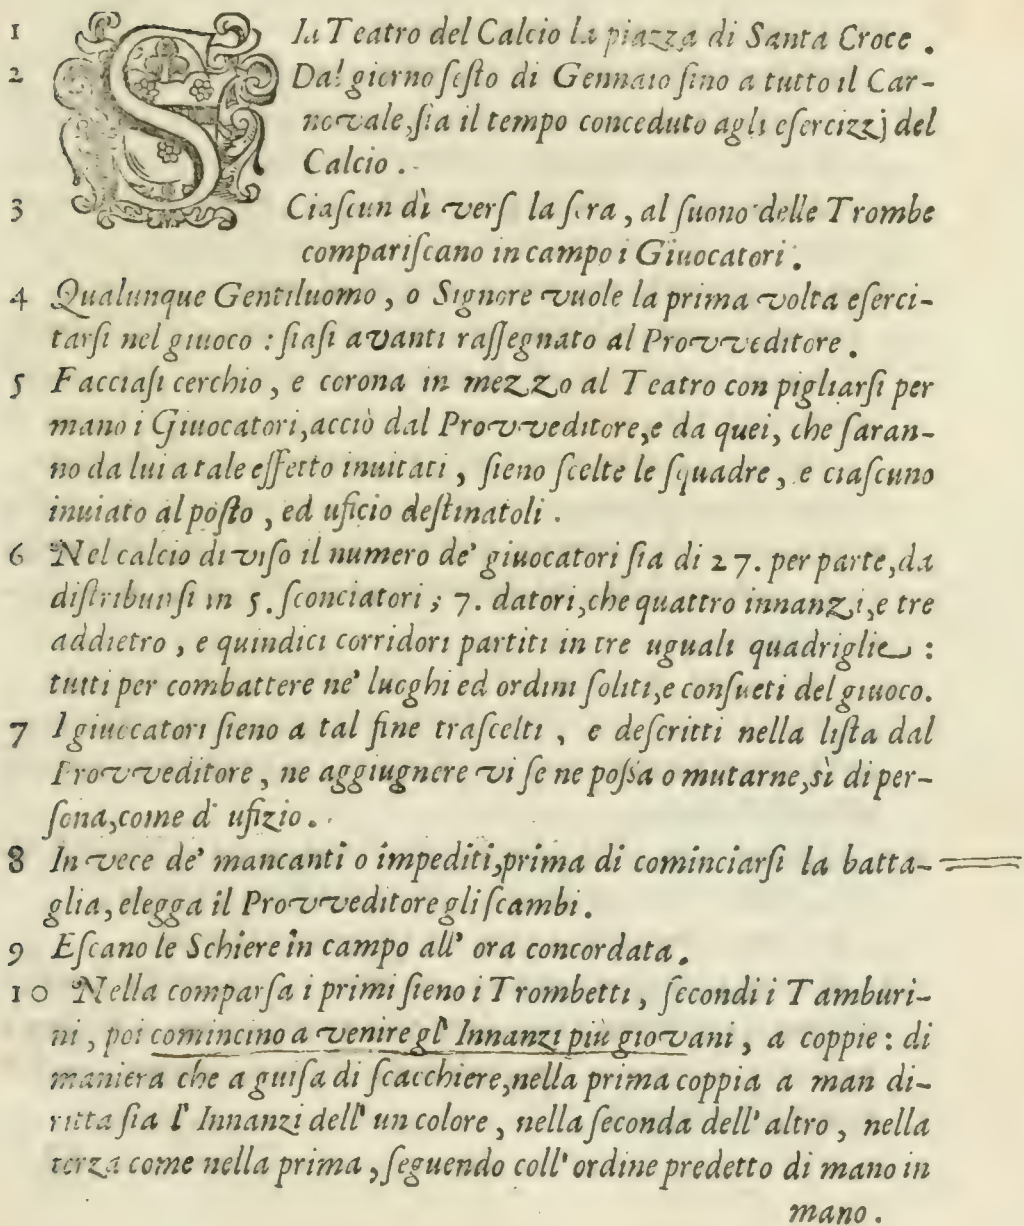 1 SIa Teatro del Calcio la piazza di Santa Croce .
2 Dal giorno ſeſto di Gennaio fino a tutto il Car-
novale, ſia il tempo conceduto agli eſercizzj del
Calcio .
3 Ciaſcun dì verſ la ſera , al ſuono delle Trombe
compariſcano in campo i Giuocatori .
4 Qualunque Gentiluomo , o Signore vuole la prima volta eſerci-
tarſi nel giuoco : ſiaſi avanti raſſegnato al Provveditore .
5 Facciaſi cerchio , e corona in mezzo al Teatro con pigliarſi per
mano i Giuocatori, acciò dal Provveditore, e da quei, che ſaran-
no da lui a tale effetto inuitati , ſieno ſcelte le ſquadre , e ciaſcuno
inuiato al poſto , ed uficio deſtinatoli .
6 Nel calcio diviſo il numero de' giuocatori ſia di 27. per parte, da
diſtribuirſi in 5. ſconciatori ; 7. datori, che quattro innanzi, e tre
addietro , e quindici corridori partiti in tre uguali quadriglie :
tutti per combattere ne' luoghi ed ordini ſoliti, e conſueti del giuoco.
7 I giuocatori ſieno a tal fine traſcelti , e deſcritti nella liſta dal
Provveditore , ne aggiugnere vi ſe ne poſſa o mutarne, sì di per-
ſona, come d' ufizio .
8 In vece de' mancanti o impediti, prima di cominciarſi la batta-
glia, elegga il Provveditore gli ſcambi .
9 Eſcano le Schiere in campo all' ora concordata .
10 Nella comparſa i primi ſieno i Trombetti , ſecondi i Tamburi-
ni , poi comincino a venire gl' Innanzi più giovani , a coppie : di
maniera che a guiſa di ſcacchiere, nella prima coppia a man di-
ritta ſia l' Innanzi dell' un colore , nella ſeconda dell' altro , nella
terza come nella prima , ſeguendo coll' ordine predetto di mano in
mano .